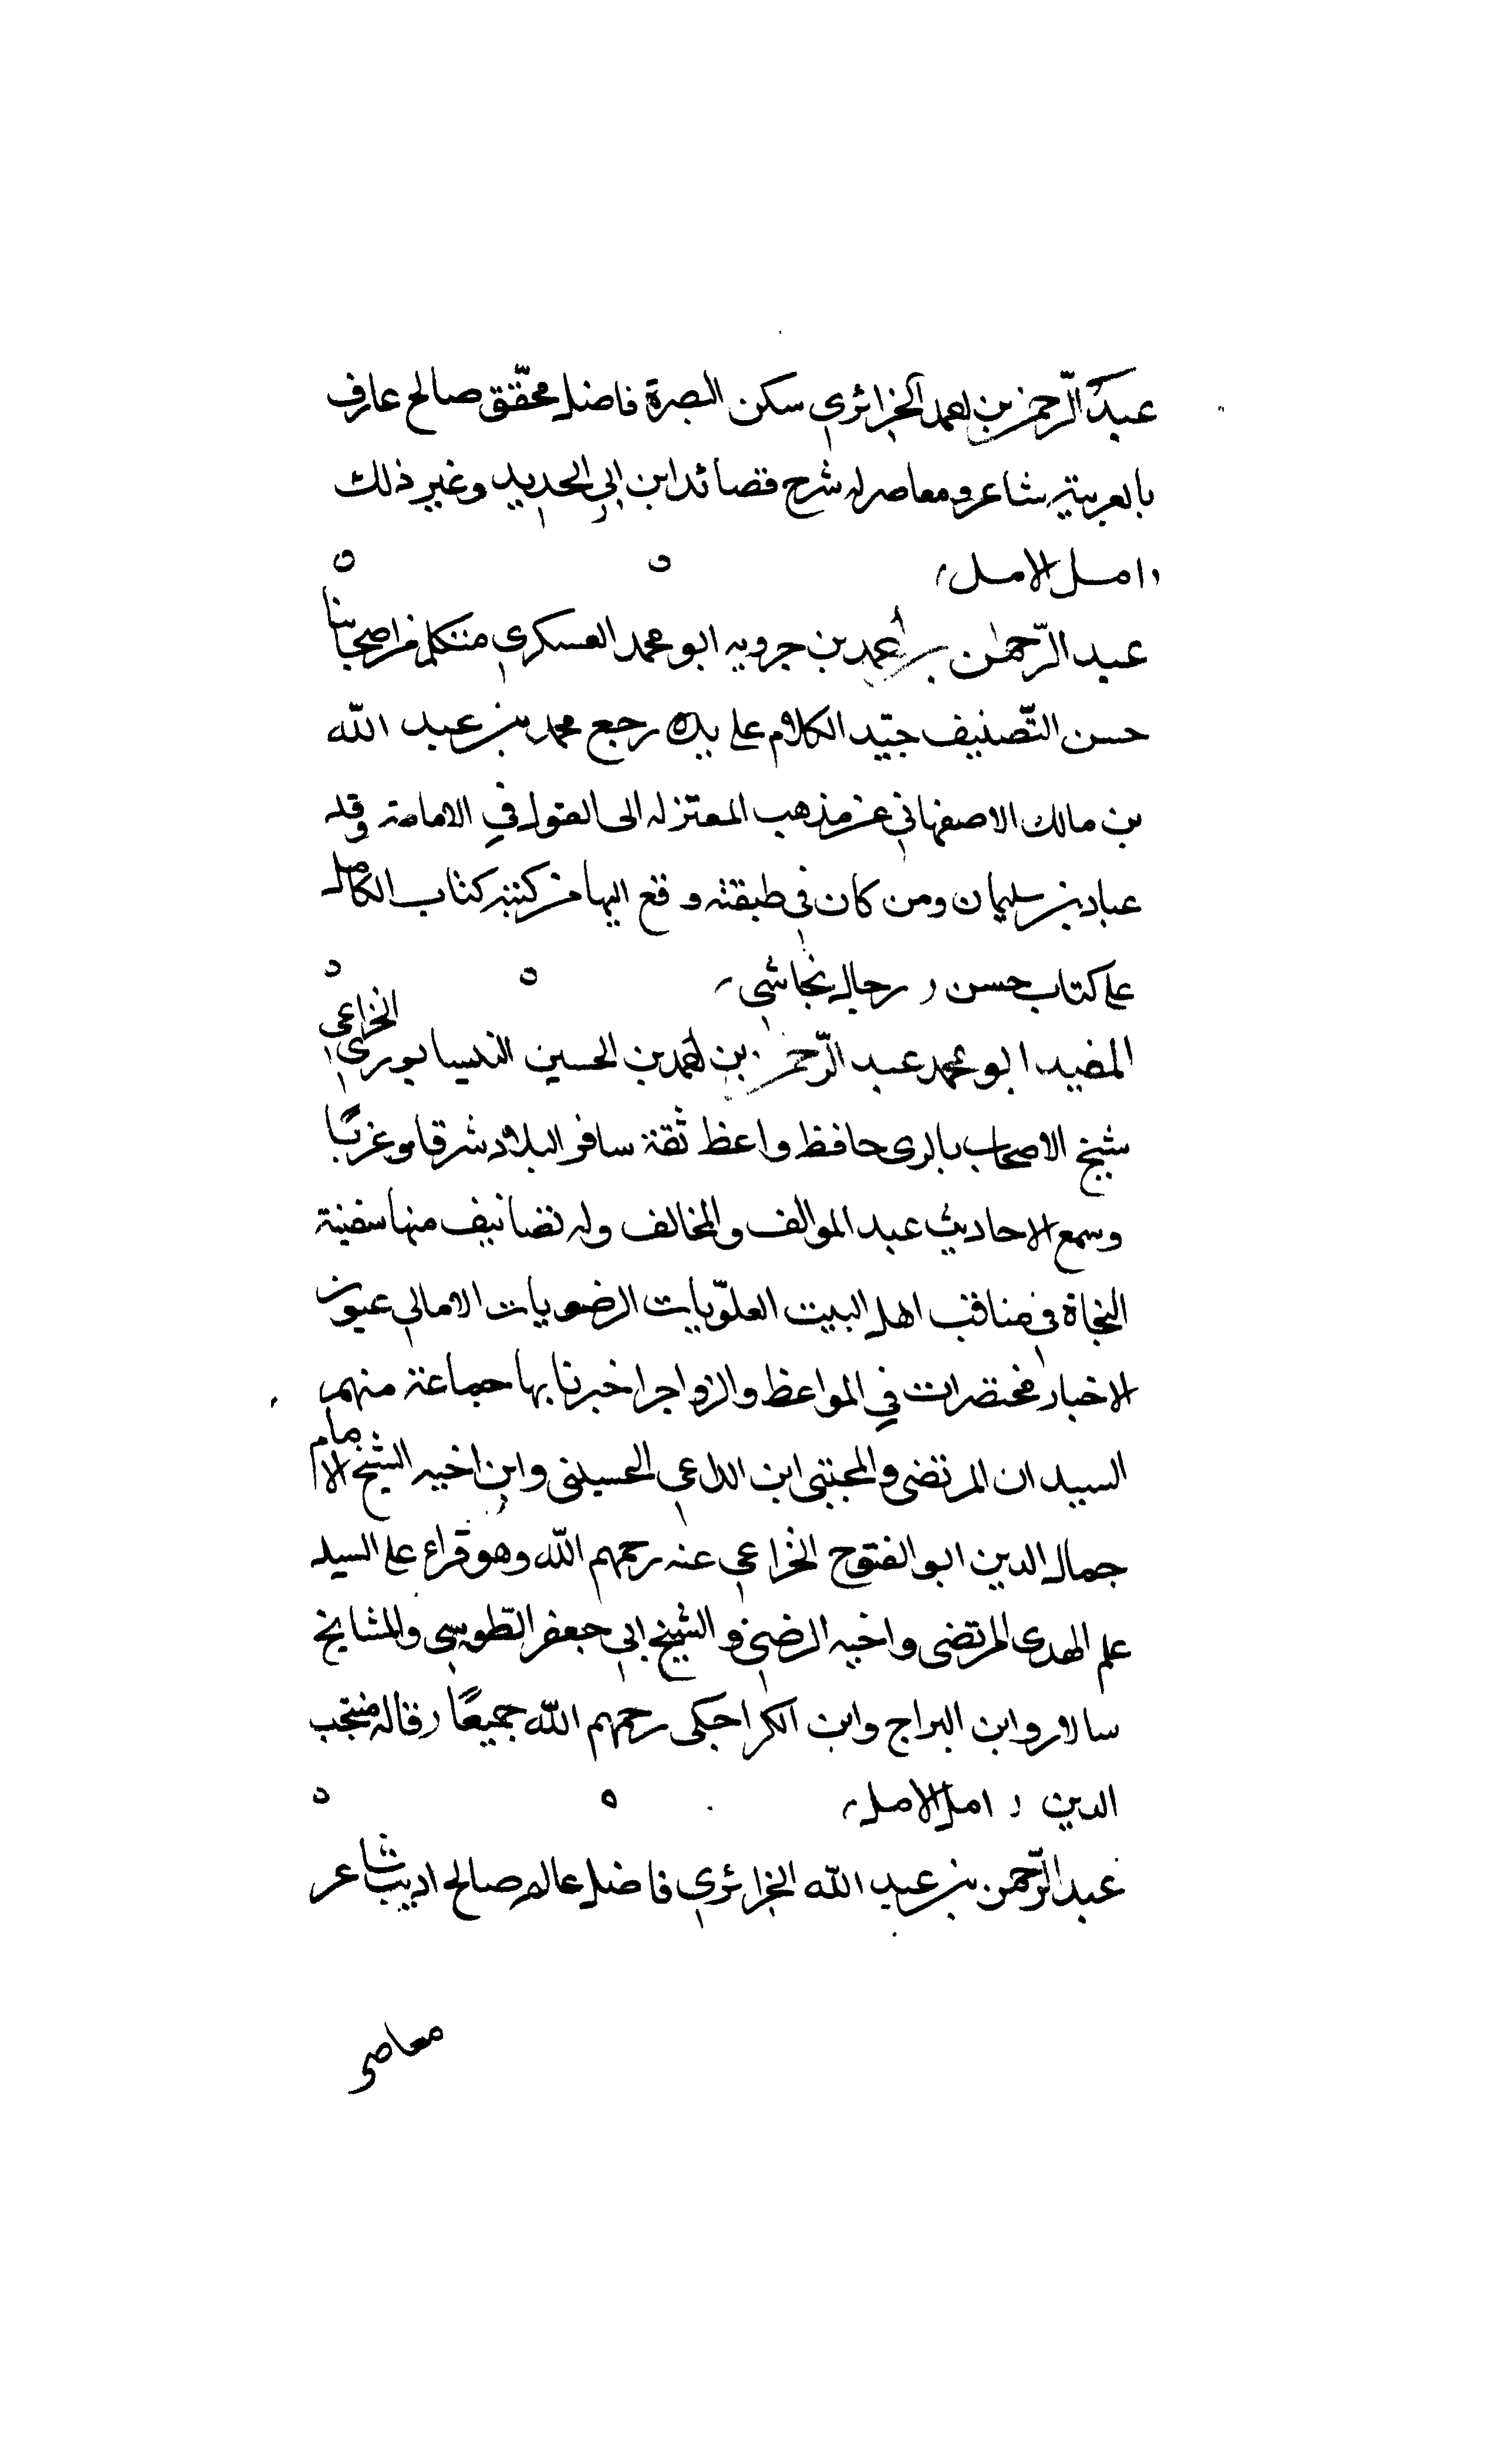 عبد الرّحمن بن احمد الجزائري سكن البصرة فاضل محقّق صالح عارف
بالعربية شاعر و معاصر له شرح قصائد ابن ابي الحديد وغير ذلك
امل الامل
عبد الرّحمن بن احمد بن جرويه ابو محمد العسكري متكلم من اصحابنا
حسن التّصنيف جيّد الكلام على يده رجع محمد بن عبد الله
بن مالك الاصفهاني عن مذهب المعتزله الى القول في الامامة وقد
عباد بن سليمان ومن كان في طبقته وقع الیها من كتبه كتاب الكامل
على كتاب حسن رجال نجاشي
المفيد ابو محمد عبد الرّحمن بن احمد بن الحسين النيسابوري الخزاعي
شيخ الاصحاب بالرى حافظ واعظ ثقة سافر البلاد شرقا وغربًا
وسمع الاحاديث عبد الموالف والمخالف وله تصانيف منها سفينة
النجاة في مناقب اهل البيت العلوّيات الرضويات الامالي عيون
الاخبار مختصرات في المواعظ والزواجر اخبرنا بها جماعة منهم
السيدان المرتضى والمجتبى ابن الداعي الحسينى وابن اخيه الشيخ الامام
جمال الدين ابو الفتوح الخزاعي عنه رحمهم الله وهو قراء على السيد
علم الهدى المرتضى واخيه الرضي و الشيخ ابي جعفر الطّوسي والمشايخ
سالار وابن البراج وابن الكراجكى رحمهم الله جميعًا قاله منتجب
الدين امل الامل
عبد الرّحمن بن عبد الله الجزائري فاضل عالم صالح اديب شاعر
معاصر